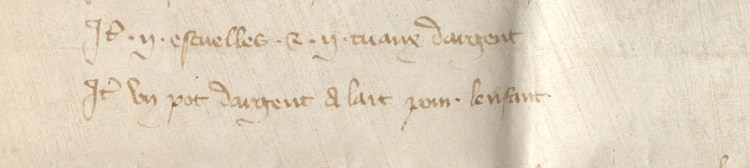 It̃ · ij · escuelles · & · ij · tuaux dargent
It̃ Vn pot dargent a lait pour · lenfant ·